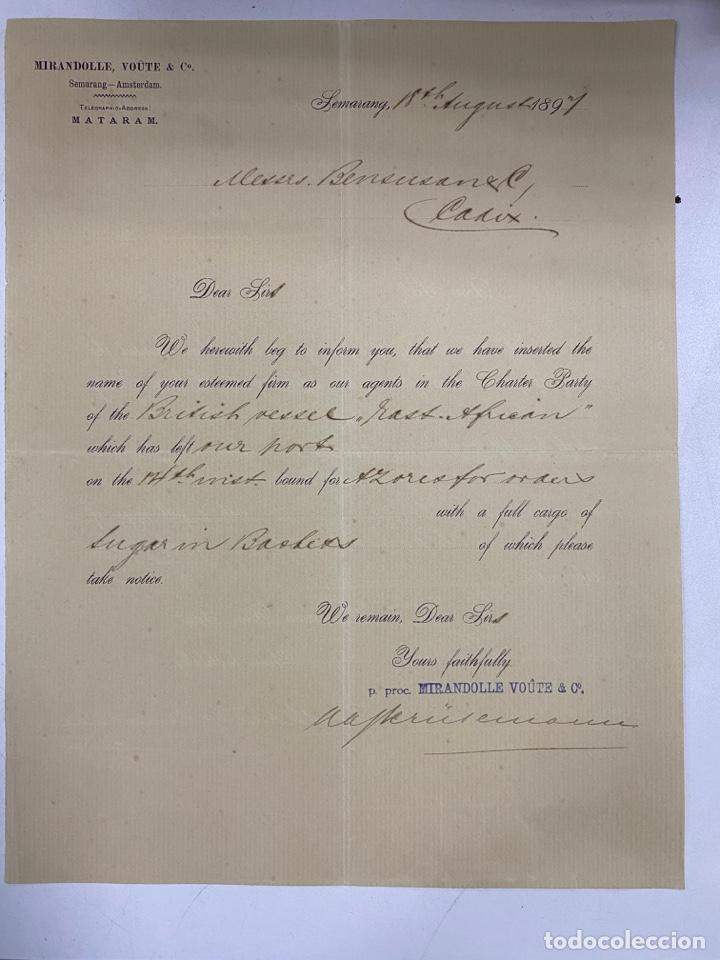 MIRANDOLLE, VOÛTE & Co.
Semarang—Amsterdam.
TELEGRAPHIC-ADDRESS:
MATARAM.
Semarang, 18th August 1897
Messrs. Bensusan & C,
Cadix.
Dear Sirs
We herewith beg to inform you, that we have inserted the
name of your esteemed firm as our agents in the Charter Party
of the British vessel „East African"
which has left our port
on the 14th inst. bound for Azores for orders
with a full cargo of
Sugar in Baskets of which please
take notice.
We remain, Dear Sirs
Yours faithfully.
p. proc. MIRANDOLLE VOÛTE & Co.
todocoleccion
todocoleccion.net